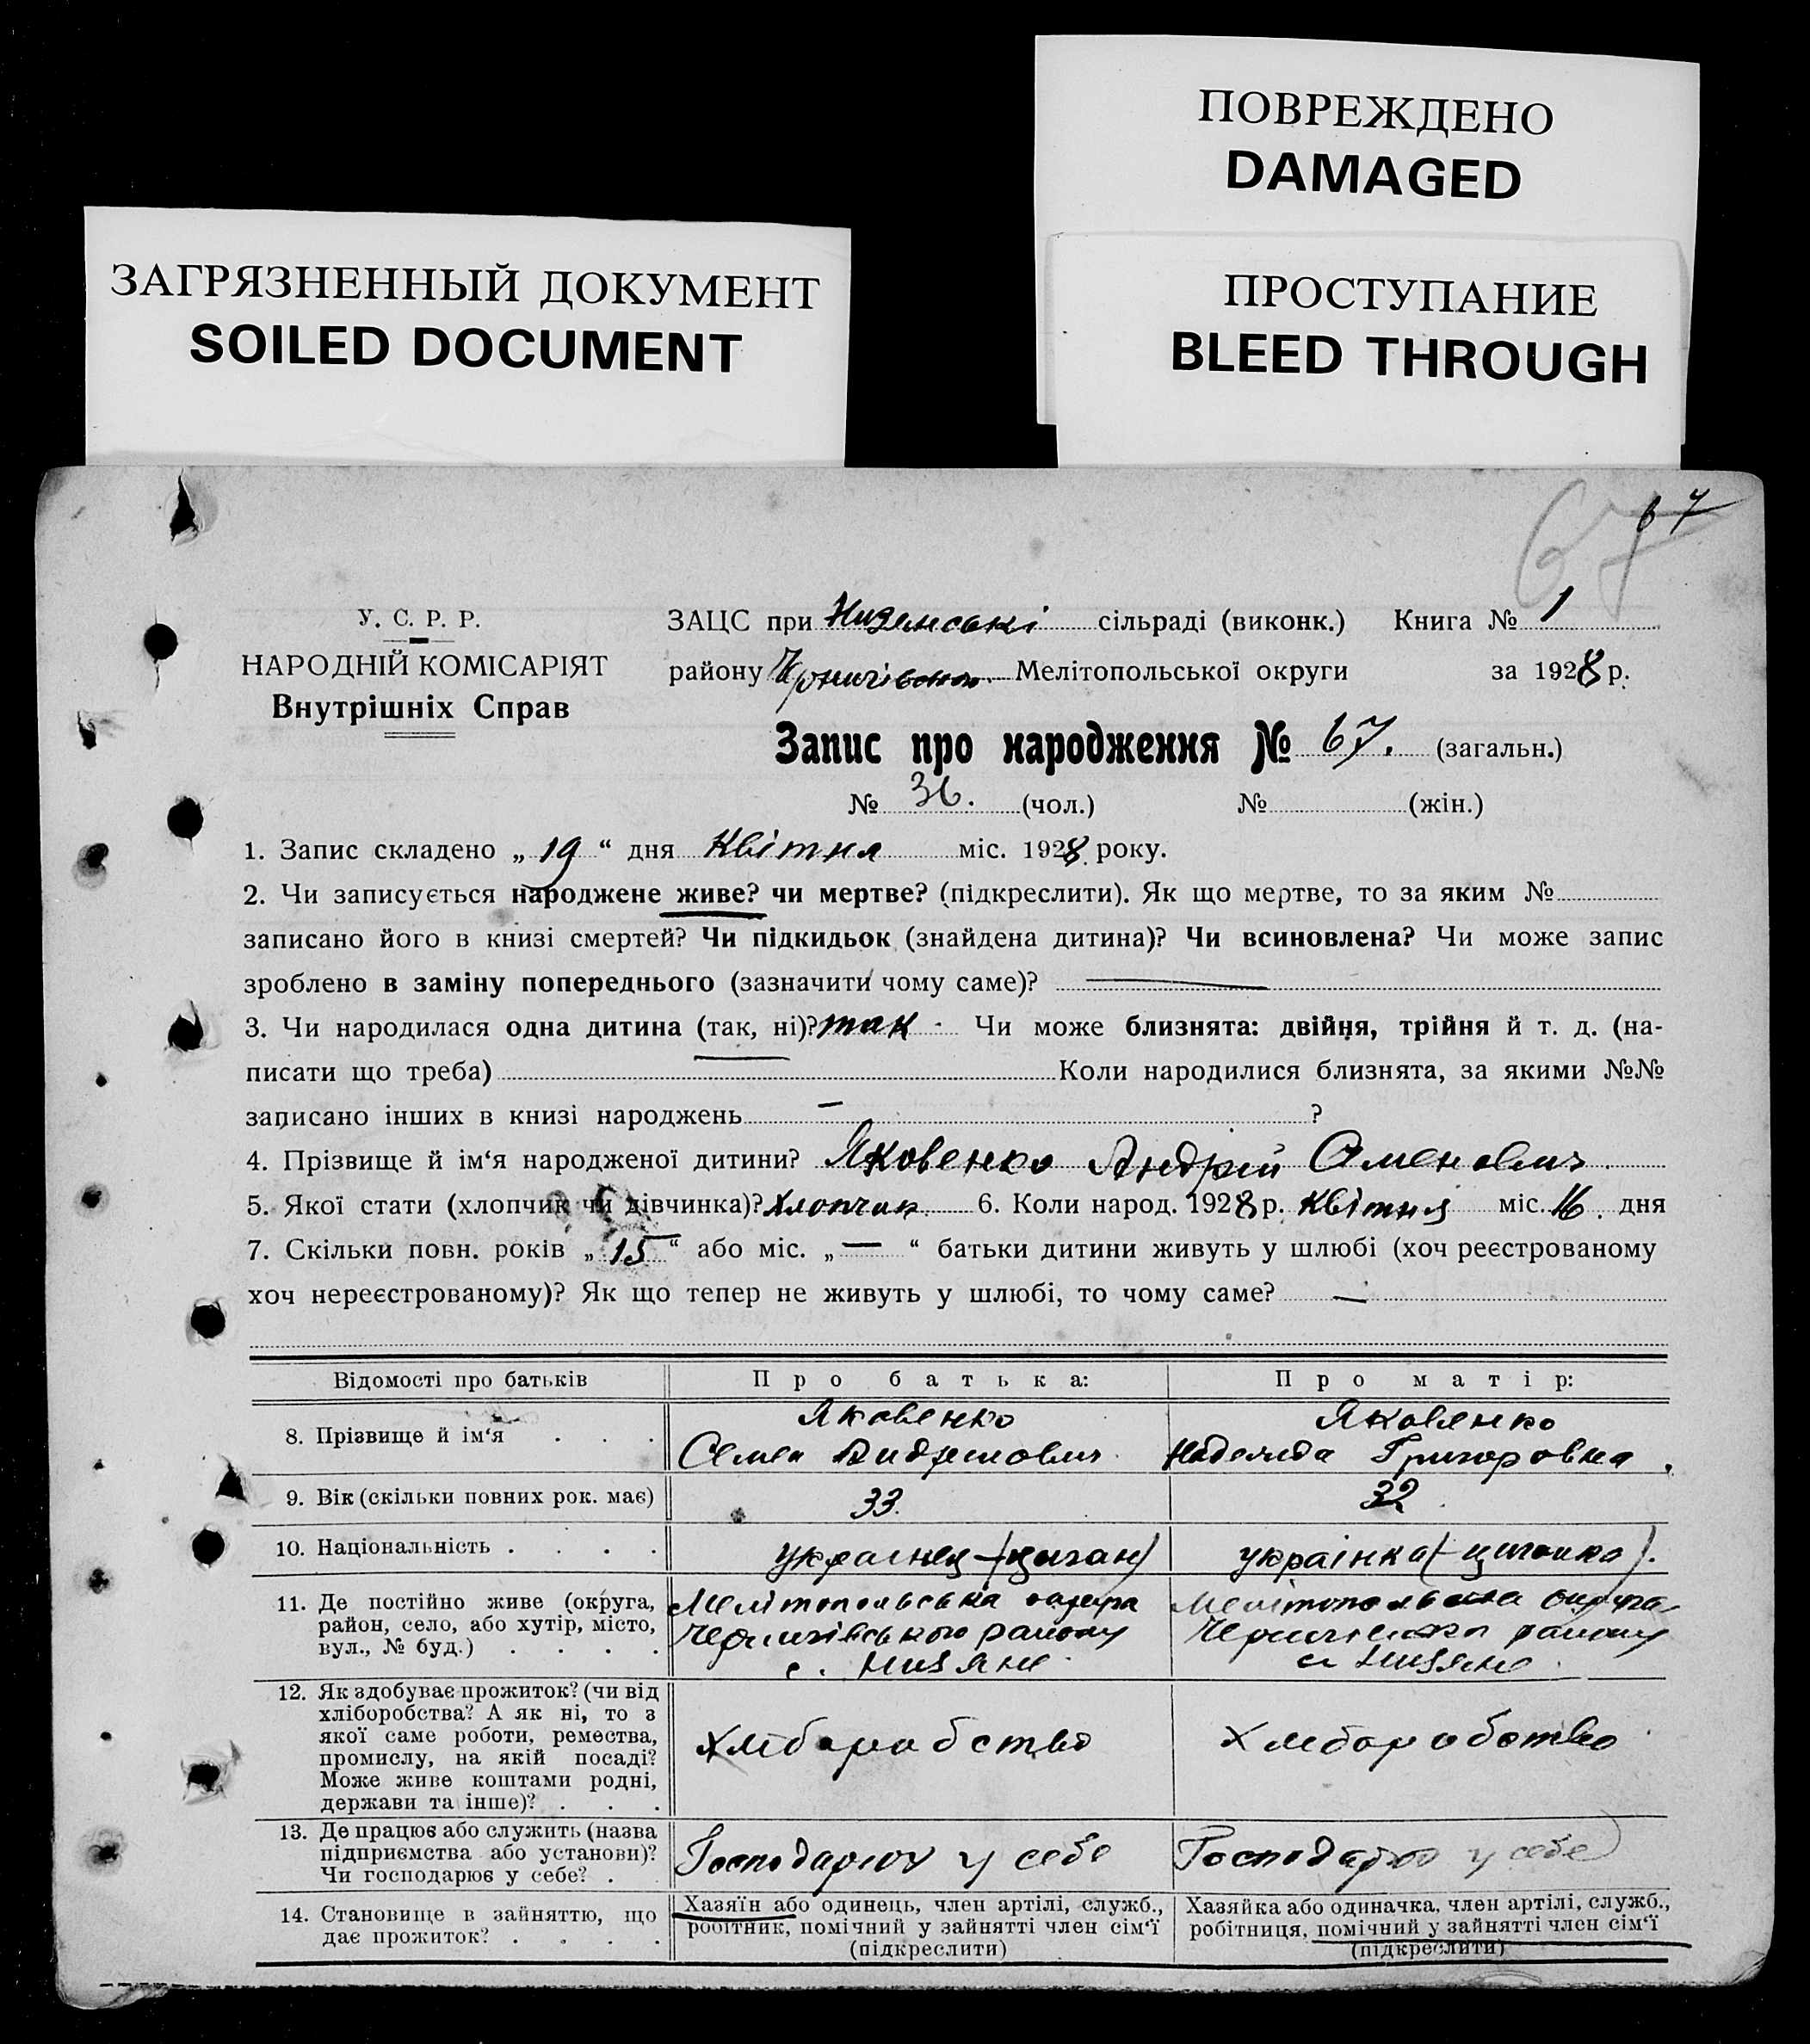 ПОВРЕЖДЕНО
DAMAGED
ЗАГРЯЗНЕННЫЙ ДОКУМЕНТ
SOILED DOCUMENT
ПРОСТУПАНИЕ
BLEED THROUGH
67
67
У. С. Р. Р.
НАРОДНІЙ КОМІСАРІЯТ
Внутрішніх Справ
ЗАЦС при Низянські сільраді (виконк.) Книга № 1
району Мелітопольської округи за 1928 р.
Запис про народження № 67. (загальн.)
№ 36. (чол.) № (жін.)
1. Запис складено „ 19 “ дня Квітня міс. 1928 року.
2. Чи записується народжене живе? чи мертве? (підкреслити). Як що мертве, то за яким №
записано його в книзі смертей? Чи підкидьок (знайдена дитина)? Чи всиновлена? Чи може запис
зроблено в заміну попереднього (зазначити чому саме)? —
3. Чи народилася одна дитина (так, ні)? так Чи може близнята: двійня, трійня й т. д. (на-
писати що треба) Коли народилися близнята, за якими №№
записано інших в книзі народжень — ?
4. Прізвище й ім‘я народженої дитини? Яковенко Андрій Семенович
5. Якої стати (хлопчик чи дівчинка)? Хлопчик 6. Коли народ. 1928 р. Квітня міс. 16. дня
7. Скільки повн. років „ 15 “ або міс. „ — “ батьки дитини живуть у шлюбі (хоч реєстрованому
хоч нереєстрованому)? Як що тепер не живуть у шлюбі, то чому саме? —
Відомості про батьків Про батька: Про матір:
8. Прізвище й ім‘я . . .
Яковенко
Семен
Яковенко
Надежда Григоровна
9. Вік (скільки повних рок. має) 33. 32
10. Національність . . . . українец - (циган) українка (- циганка).
11. Де постійно живе (округа,
район, село, або хутір, місто,
вул., № буд.) . . . .
Мелітопольська округа
Чернигівського району
с. Низяне
Мелітопольська округа
району
с. Низяне
12. Як здобуває прожиток? (чи від
хліборобства? А як ні, то з
якої саме роботи, ремества,
промислу, на якій посаді?
Може живе коштами родні,
держави та інше)? . . .
Хліборобство
Хліборобство
13. Де працює або служить (назва
підприємства або установи)?
Чи господарює у себе? .
Господарює у себе
Господарює у себе
14. Становище в зайняттю, що
дає прожиток? . . . .
Хазяїн або одинець, член артілі, служб.,
робітник, помічний у зайнятті член сім‘ї
(підкреслити)
Хазяйка або одиначка, член артілі, служб.,
робітниця, помічний у зайнятті член сім‘ї
(підкреслити)